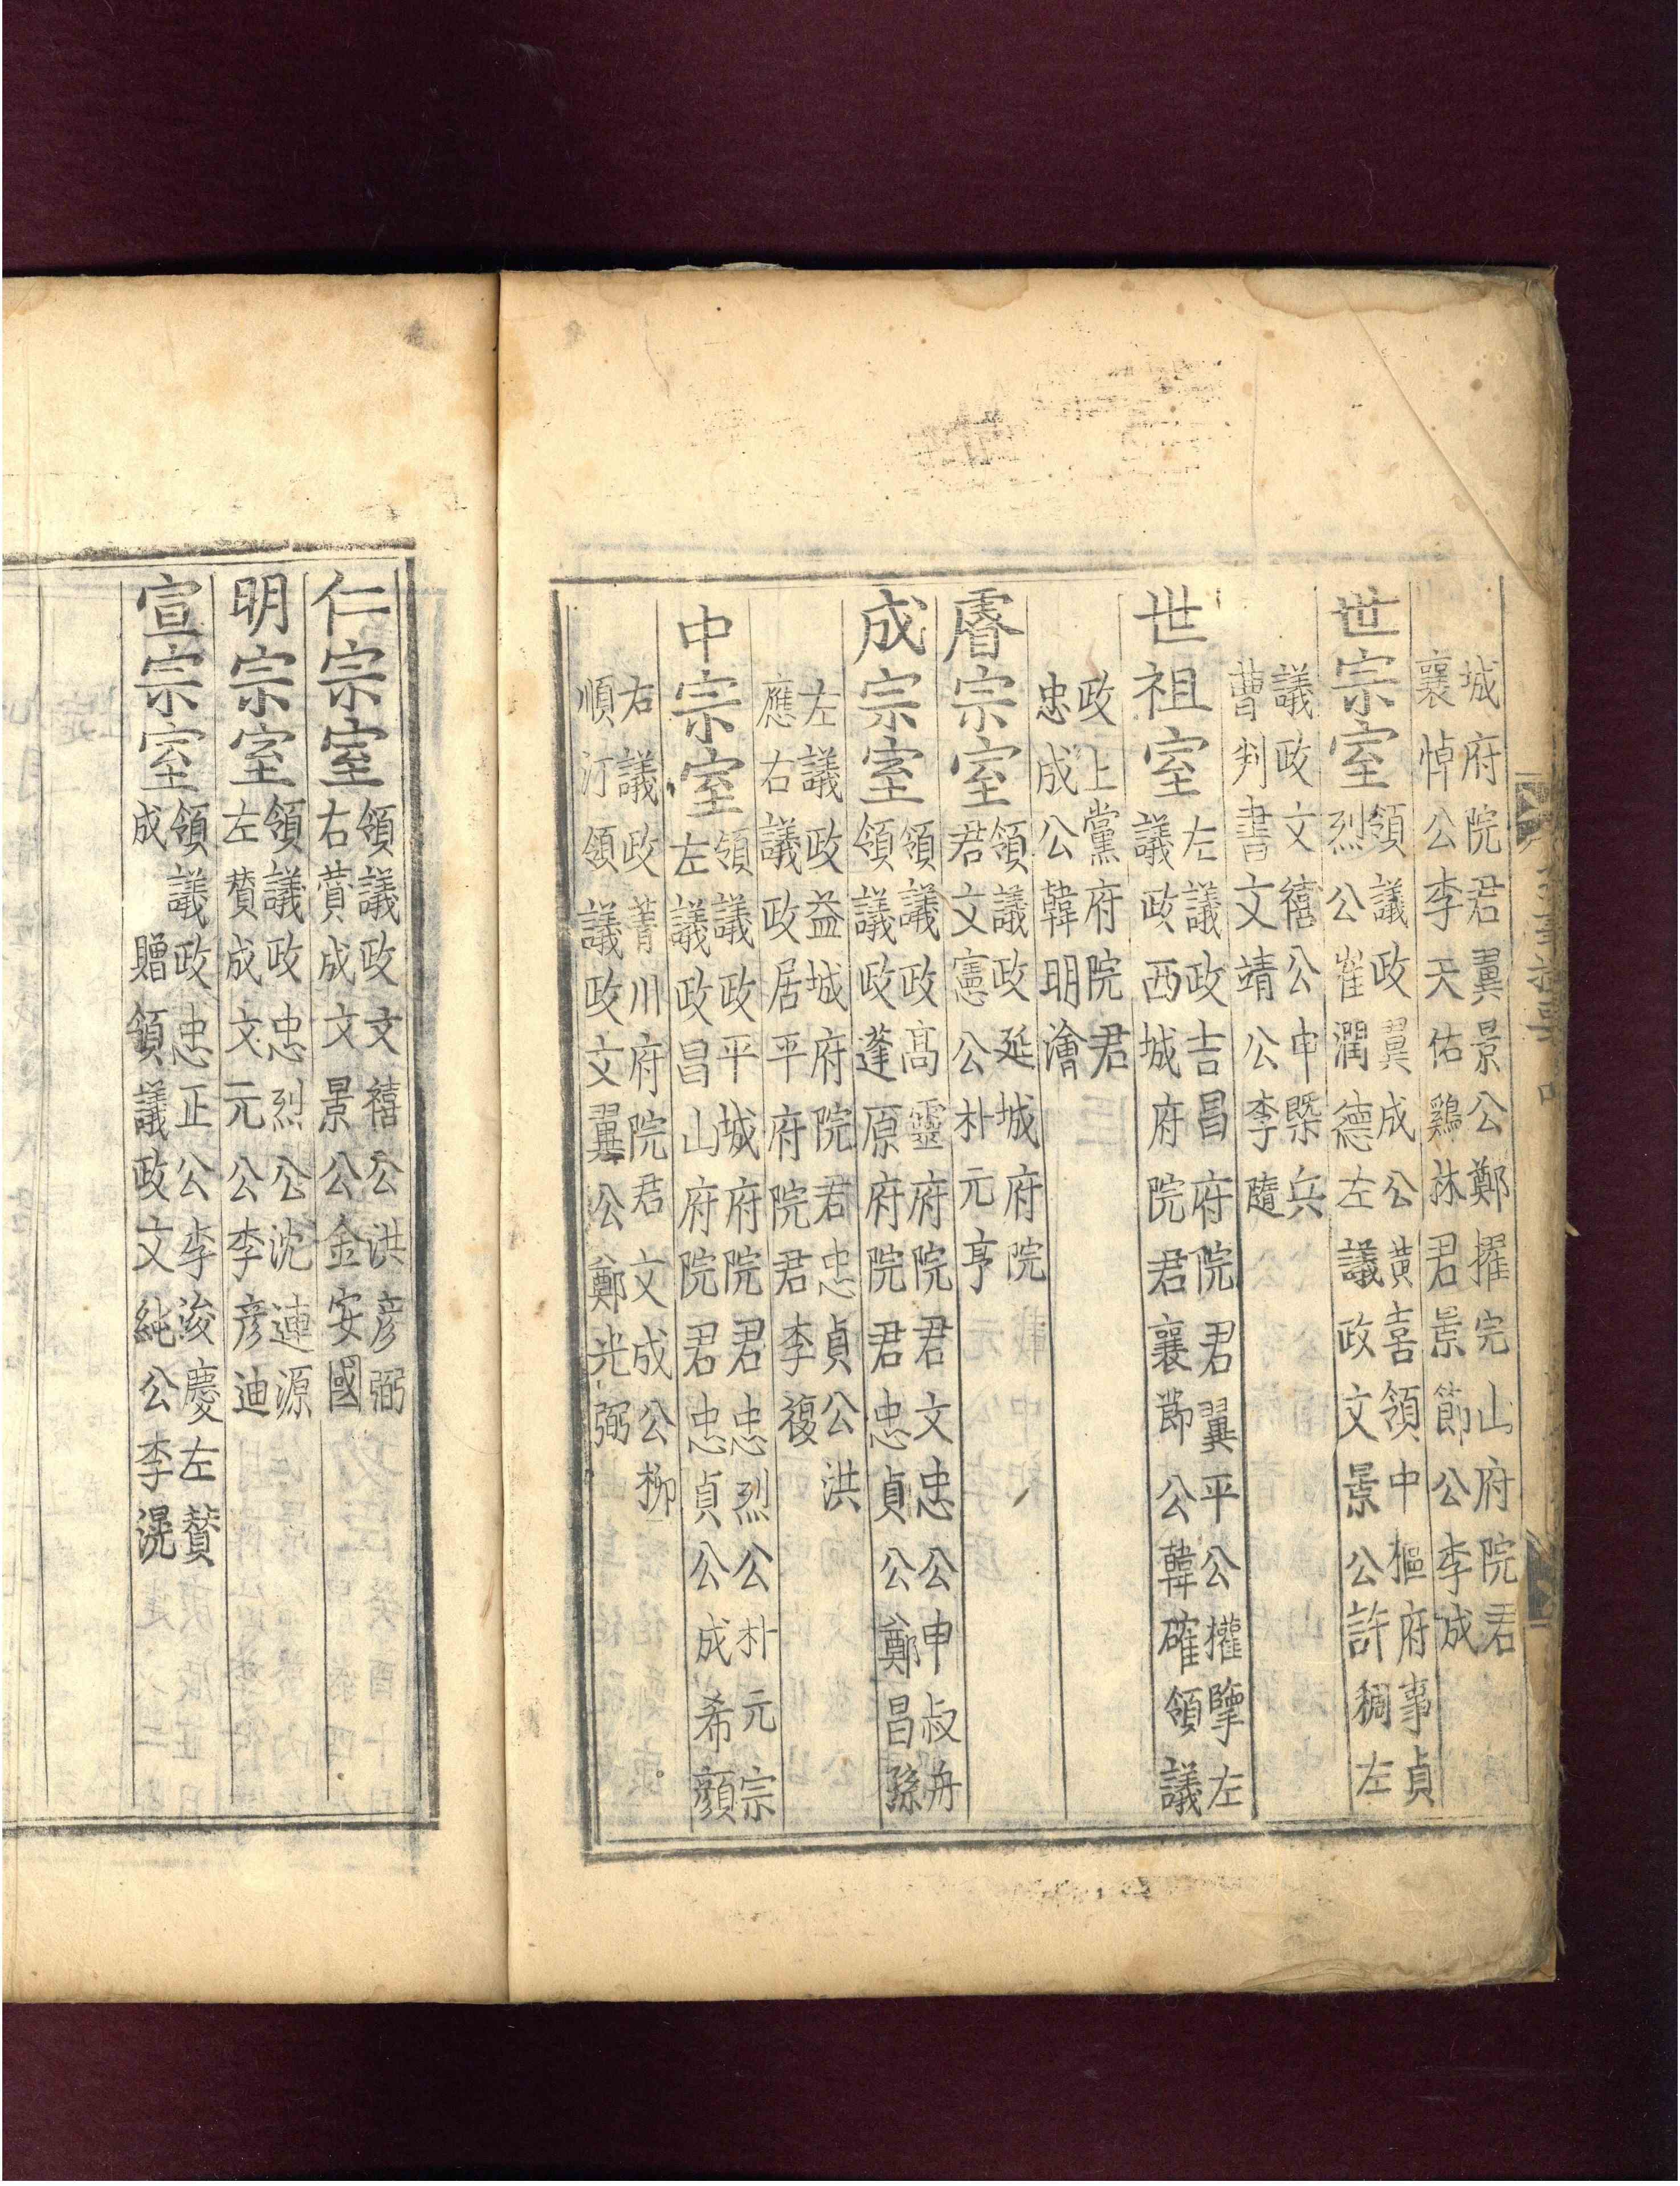 城府院君翼景公鄭擢完山府院君
襄悼公李天佑鷄林君景節公李成
世宗室
領議政翼成公黃喜領中樞府事貞
烈公崔潤德左議政文景公許稠左
議政文禧公申槩兵
曹判書文靖公李隨
世祖室
左議政吉昌府院君翼平公權擥左
議政西城府院君襄節公韓確領議
政上黨府院君
忠成公韓明澮
睿宗室
領議政延城府院
君文憲公朴元亨
成宗室
領議政高靈府院君文忠公申叔舟
領議政蓬原府院君忠貞公鄭昌孫
左議政益城府院君忠貞公洪
應右議政居平府院君李復
中宗室
領議政平城府院君忠烈公朴元宗
左議政昌山府院君忠貞公成希顏
右議政菁川府院君文成公柳
順汀領議政文翼公鄭光弼
仁宗室
領議政文禧公洪彦弼
右賛成文景公金安國
明宗室
領議政忠烈公沈連源
左賛成文元公李彦迪
宣宗室
領議政忠正公李浚慶左賛
成 贈領議政文純公李滉